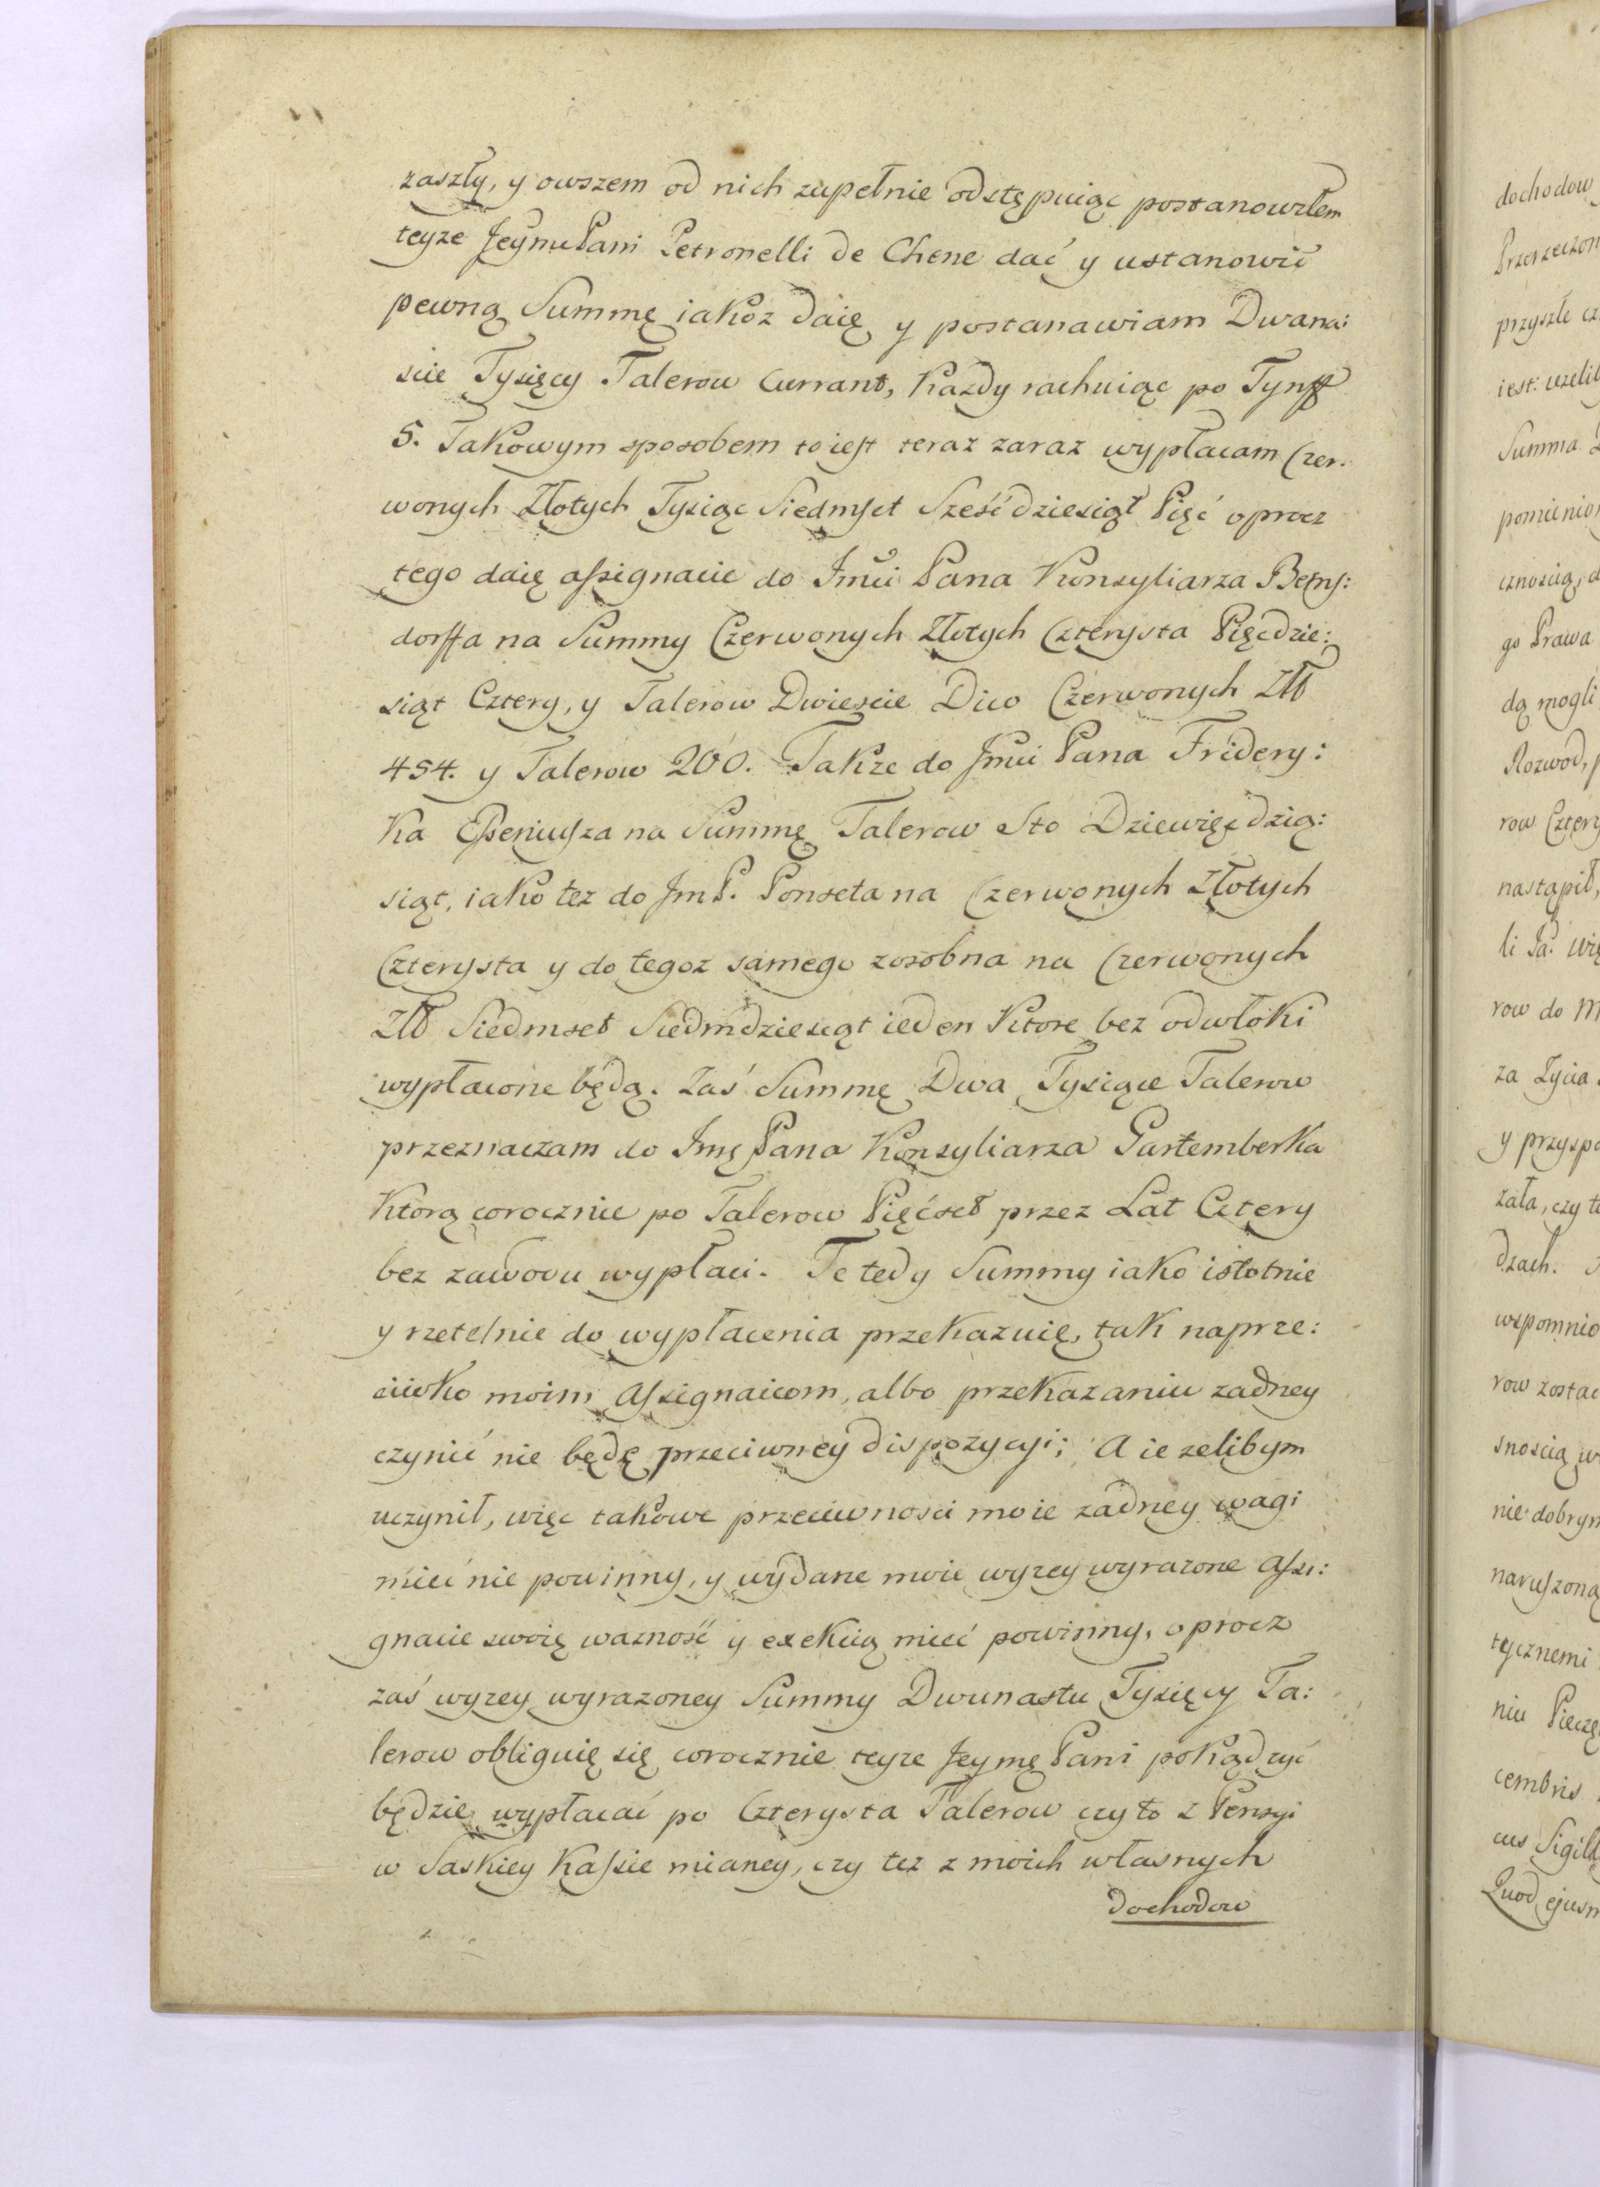 zaszły, y owszem od nich zupełnie odstępuiąc postanowiłem
teyze Jeymu Pani Petronelli de Chene dać y ustanowić
pewną Summę iakoz daię y postanawiam Dwana:
scie Tysięcy Talerow Currant, Kazdy rachuiąc po Tynff
5. Takowym sposobem to iest teraz zaraz wypłacam Czer.
wonych Złotych Tysiąc Siedmset Sześćdziesiąt Pięć oprocz
tego daię assignacie do Jmci Pana Konsyliarza Berns:
dorffa na Summy Czerwonych Złotych Czterysta Pięcdzie:
siąt Cztery, y Talerow Dwiescie Dico Czerwonych Złł
454. y Talerow 200. Takze do Jmci Pana Fridery:
Ka Esseniusza na Summę Talerow Sto Dziewięcdzią:
siąt, iako tez do Jm P. Ponseta na Czerwonych Złotych
Czterysta y do tegoz samego zosobna na Czerwonych
Złł Siedmset Siedmdziesiąt ieden Ktore bez odwłoki
wypłacone będą. Zaś Summę Dwa Tysiące Talerow
przeznaczam do Jmę Pana Konsyliarza Gartemberka
Ktorą corocznie po Talerow Pięćset przez Lat Cztery
bez zawodu wypłaci. Te tedy Summy iako istotnie
y rzetelnie do wypłacenia przekazuię, tak naprze:
ciwko moim Assignaicom, albo przekazaniu zadney
czynić nie będę przeciwney dispozycyi; A ie zelibym
uczynił, więc takowe przeciwnosci moie zadney wagi
mieć nie powinny, y wydane moie wyzey wyrazone assi:
gnacie swoię wazność y exekcią mieć powinny, oprocz
zaś wyzey wyrazoney Summy Dwunastu Tysięcy Ta:
lerow obliguię się corocznie teyze Jeymę Pani pokąd zyć
będzie wypłacać po Czterysta Talerow czy to z Pensyi
w Saskiey Kassie mianey, czy tez z moich własnych
dochodow
dochodow
przyszłe
Summa
go Prawa
dą mogli
Rozwod,
row Cztery
nastąpił,
row do
za Zycia
dzach.
row zostac
nie dobrym
naruszoną
tycznemi
cembris
cus Sigill
Quod ejusm